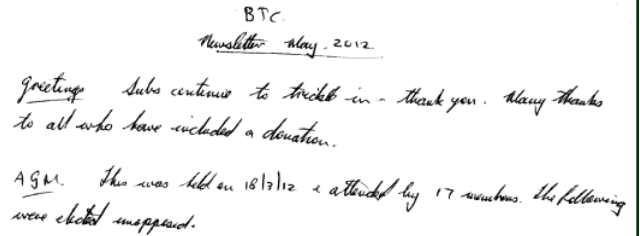 BTC.
Newsletter May. 2012.
Greetings Subs continue to trickle in - thank you. Many thanks
to all who have included a donation.
AGM. This was held on 18/3/12 & attended by 17 members. The following
were elected unopposed.